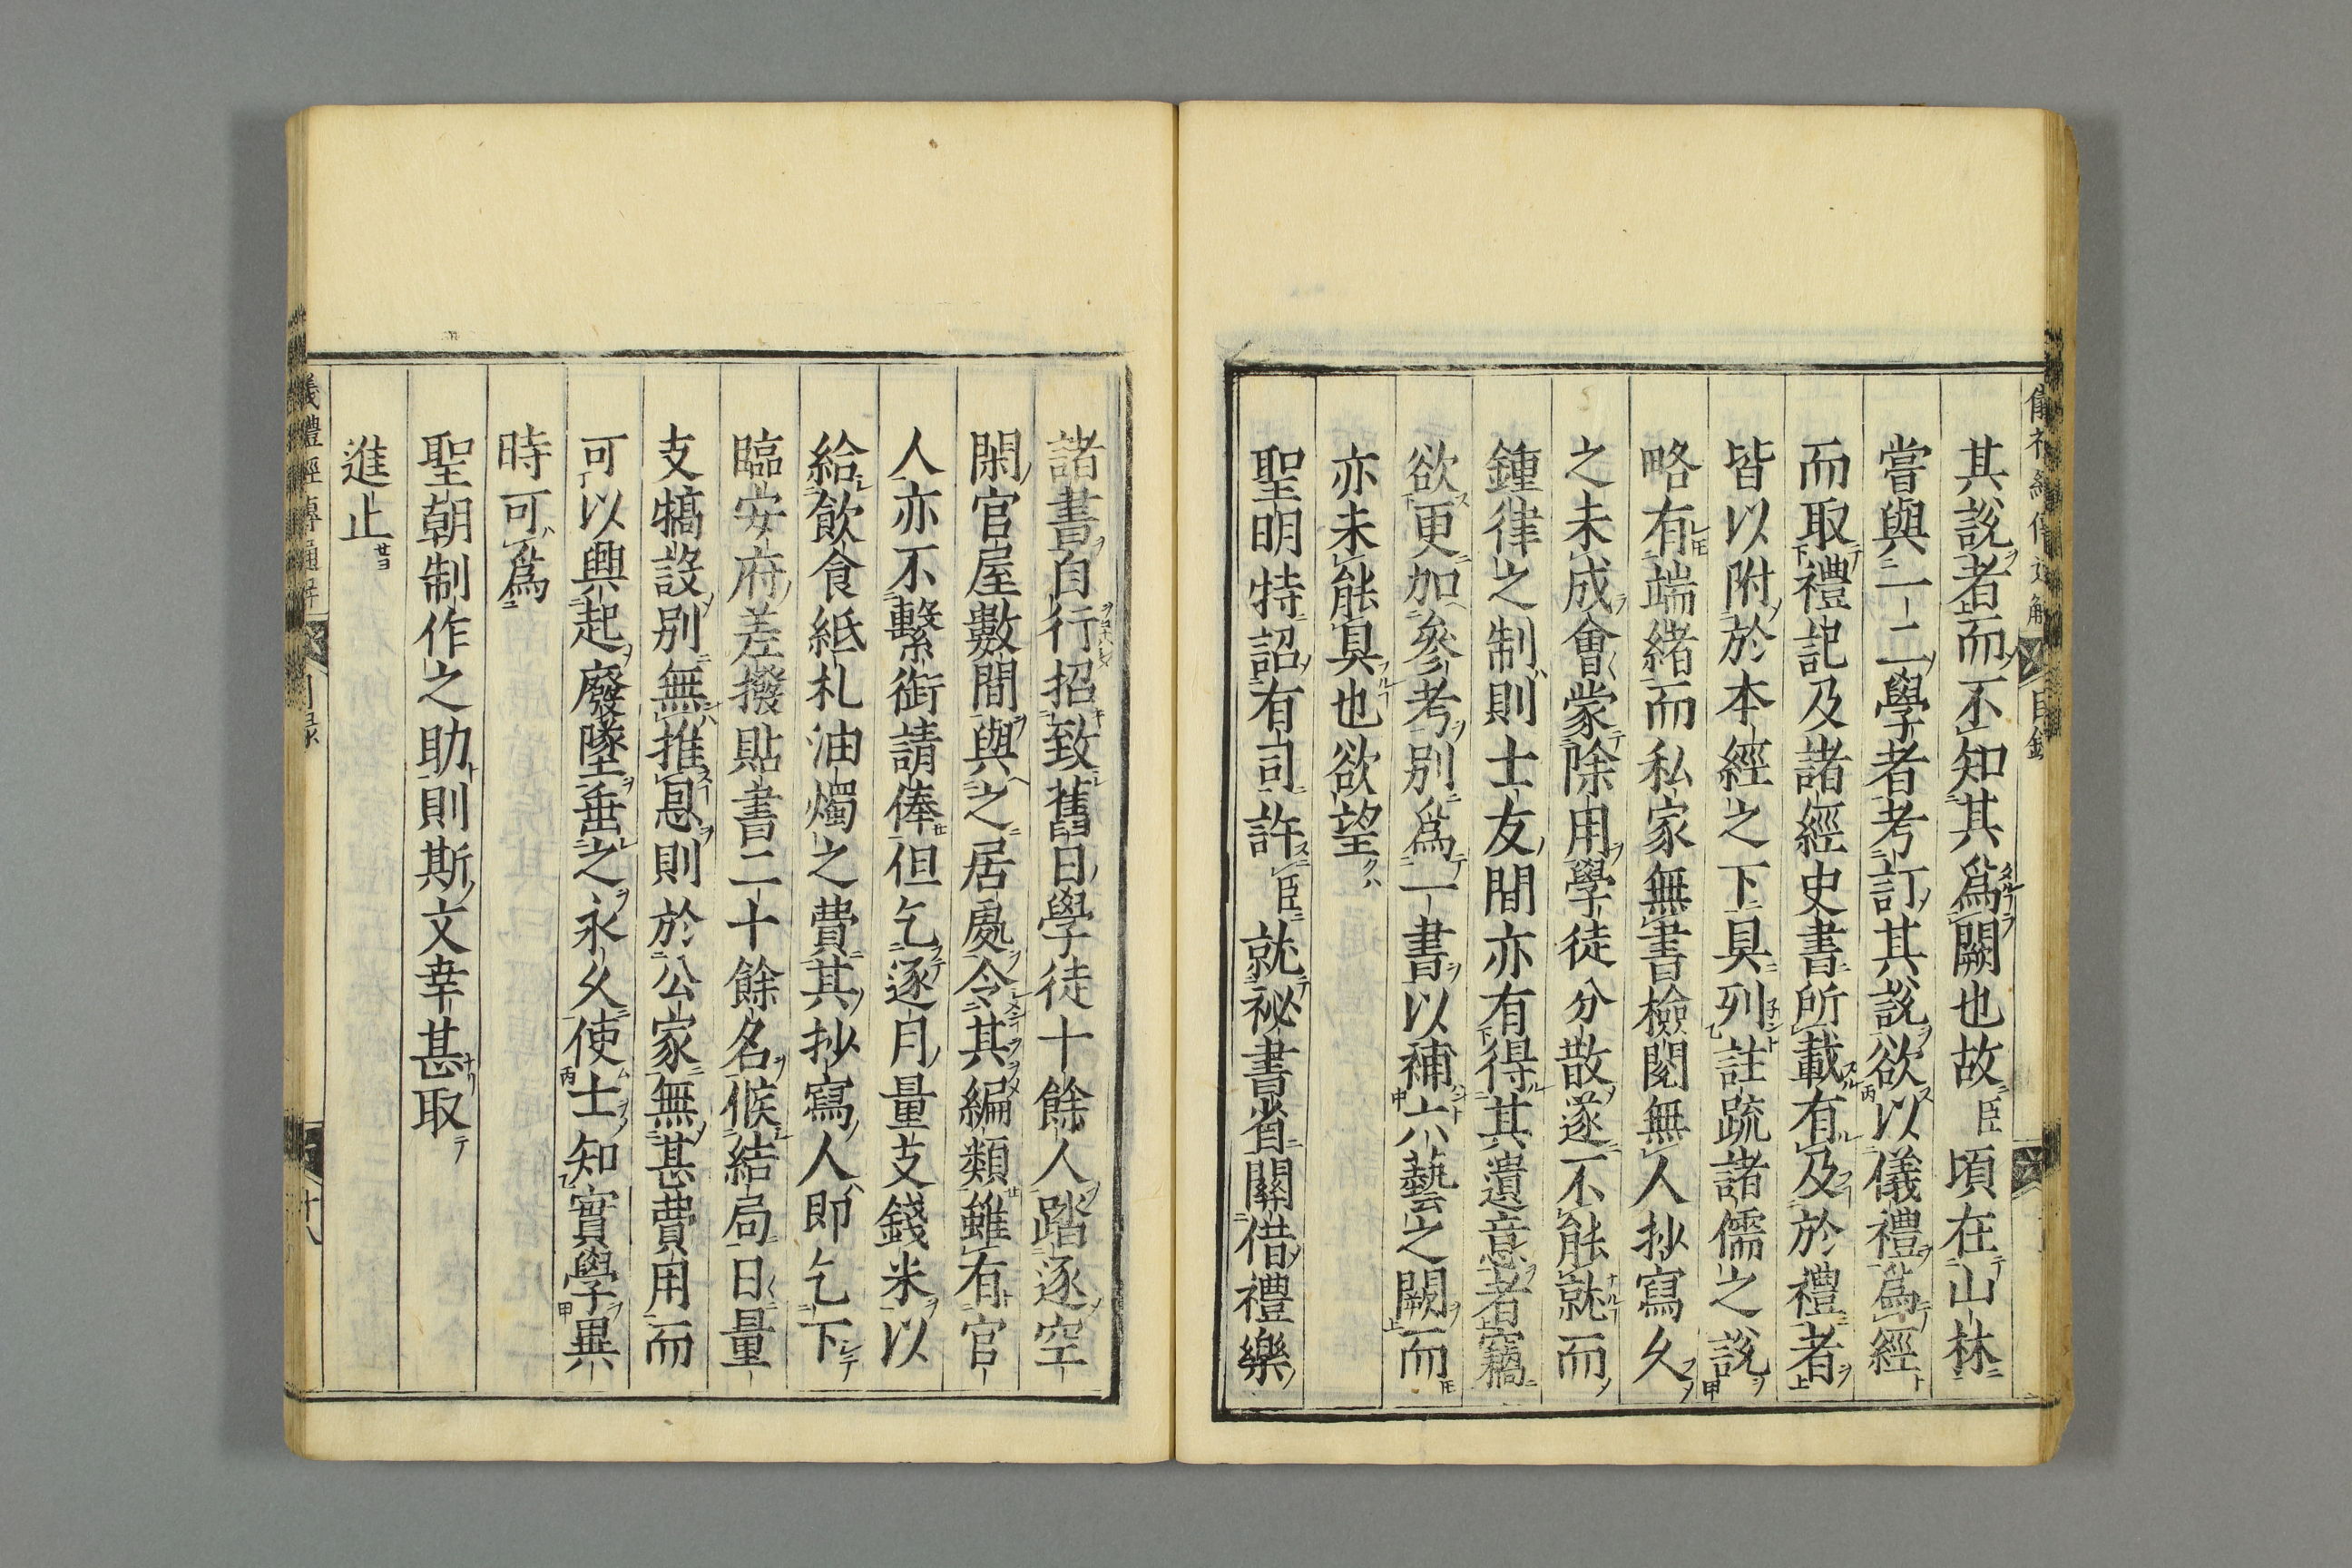 其說者而不知其爲闕也故臣頃在山林
嘗與一二學者考訂其說欲以儀禮爲經
而取禮記及諸經史書所載有及於禮者
皆以附於本經之下具列註疏諸儒之說
略有端緒而私家無書檢閱無人抄寫久
之未成會蒙除用學徒分散遂不能就而
鍾律之制則士友間亦有得其遺意者竊
欲更加參考別爲一書以補六藝之闕而
亦未能具也欲望
聖明特詔有司許臣就祕書省關借禮樂
諸書自行招致舊日學徒十餘人踏逐空
閑官屋數間與之居處令其編類雖有官
人亦不繫銜請俸但乞逐月量支錢米以
給飲食紙札油燭之費其抄寫人即乞下
臨安府差撥貼書二十餘名候結局日量
支犒設別無推恩則於公家無甚費用而
可以興起廢墜垂之永久使士知實學異
時可爲
聖朝制作之助則斯文幸甚取
進止
儀禮經傳通解 目録 十八